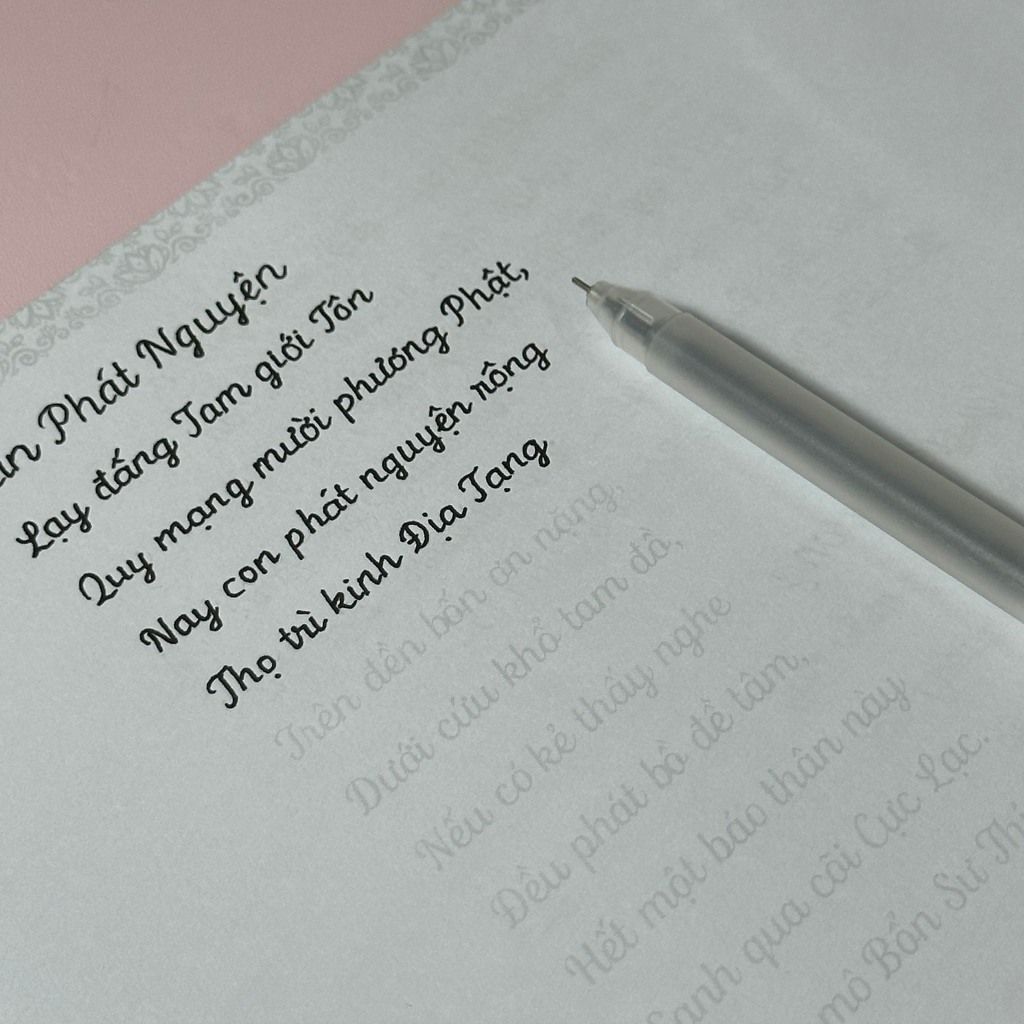 Phát Nguyện
Lạy đấng Tam giới Tôn
Quy mạng mười phương Phật,
Nay con phát nguyện rộng
Thọ trì kinh Địa Tạng
Trên đền bốn ơn nặng,
Dưới cứu khổ tam đồ,
Nếu có kẻ thấy nghe
Đều phát bồ đề tâm,
Hết một báo thân này
Sanh qua cõi Cực Lạc.
mô Bổn Sư